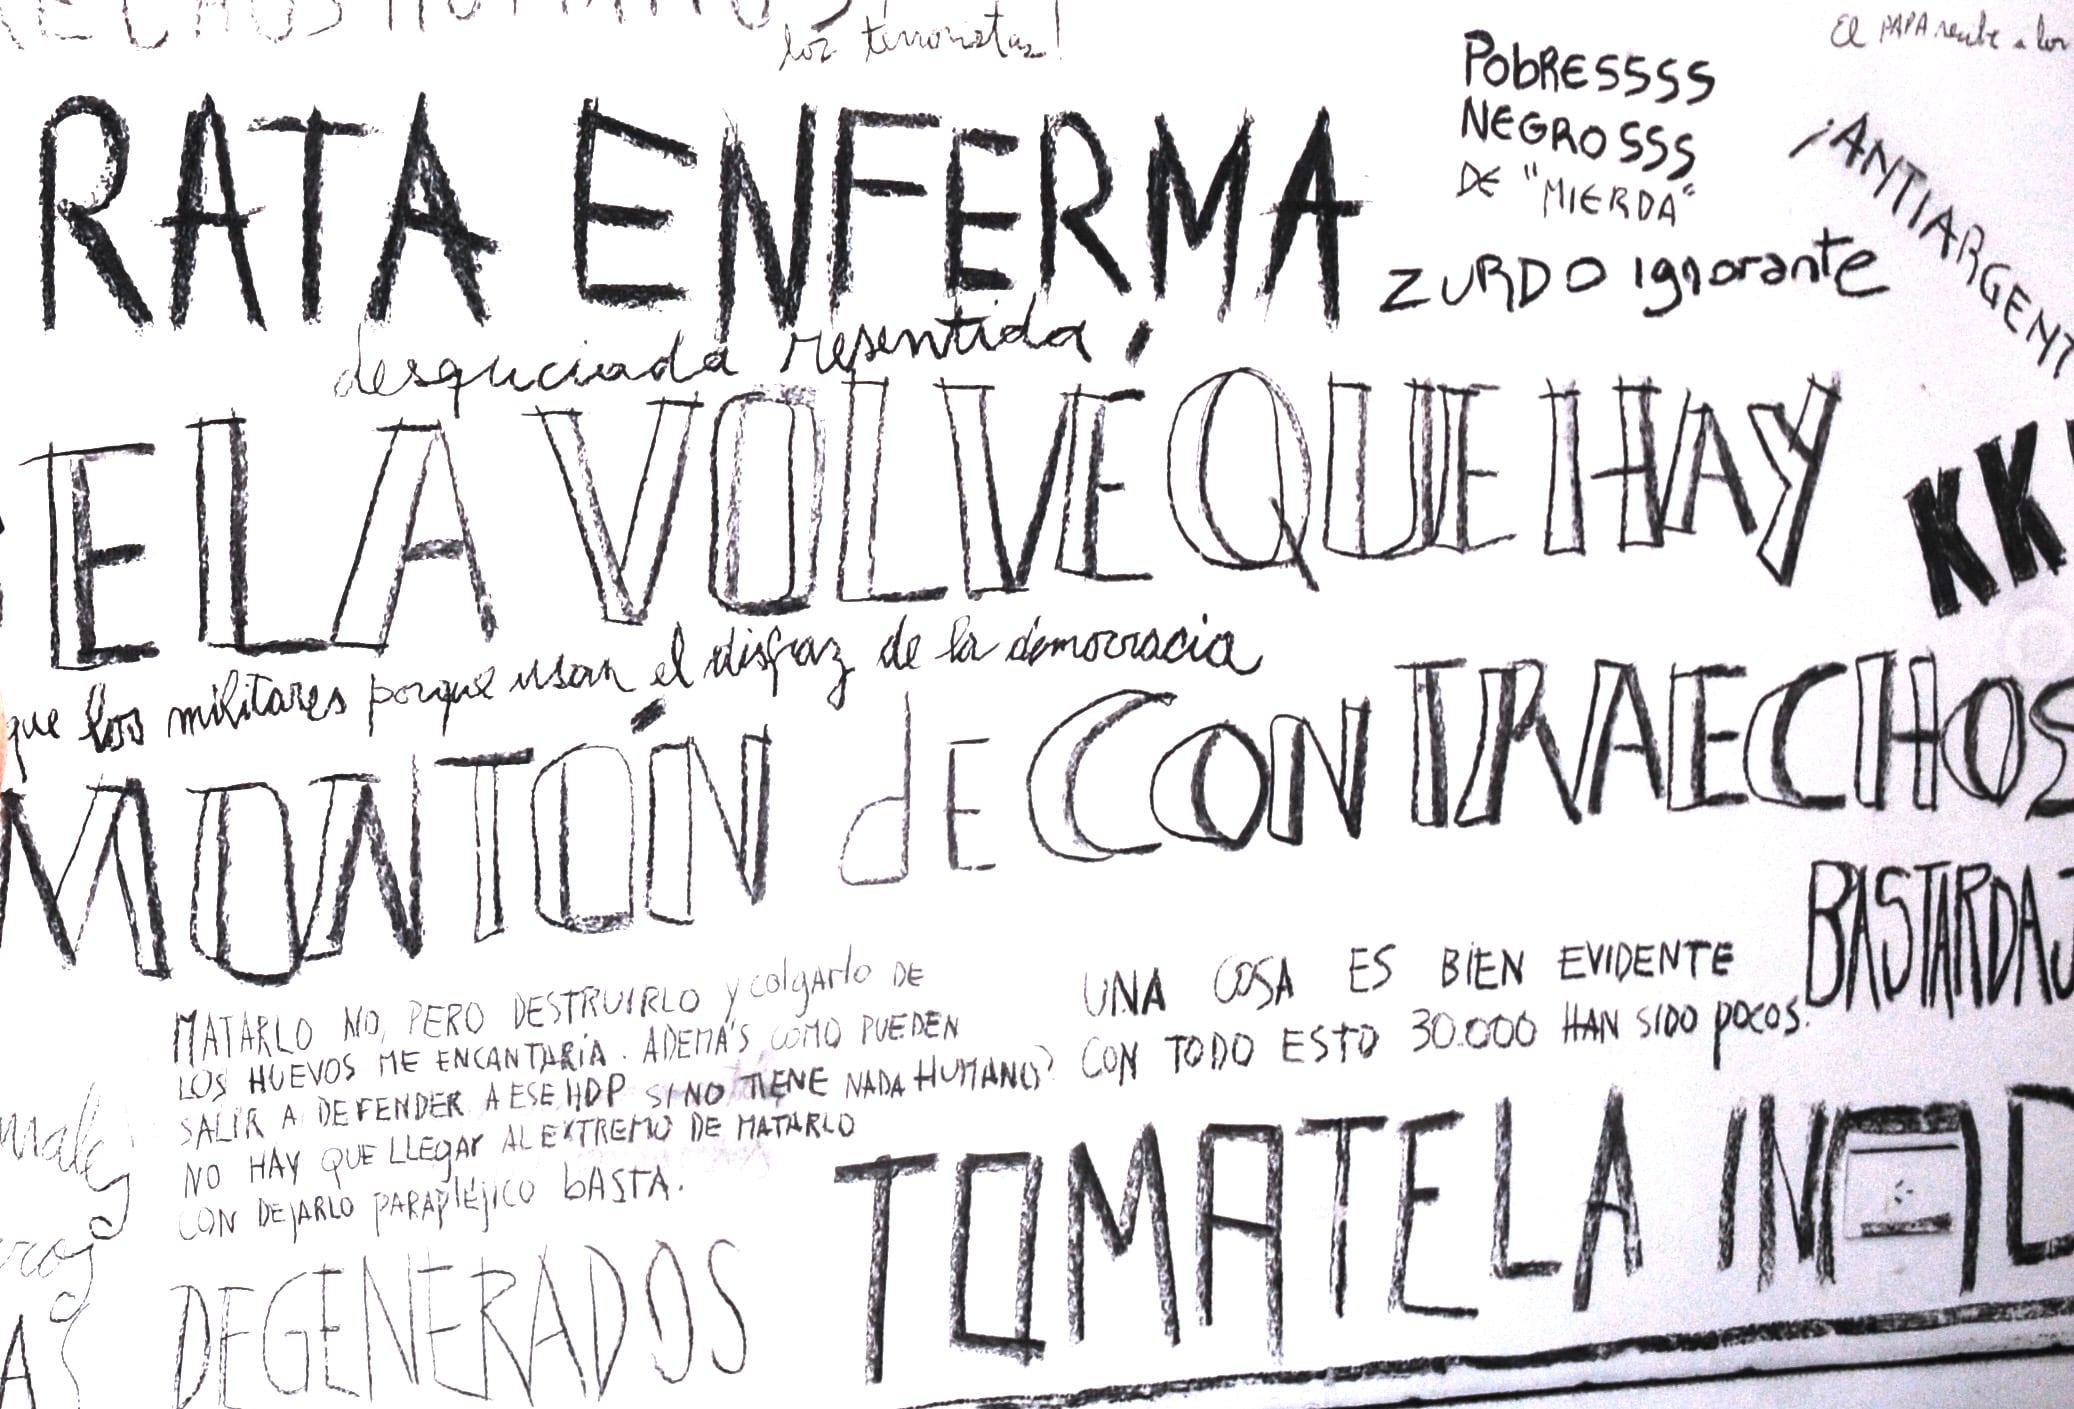 ECHOS HUMANOS!
los terroristas!
El PAPA recibe a los
RATA ENFERMA
POBRESSSS
NEGROSSS
DE "MIERDA"
¡ANTIARGENT
ZURDO ignorante
desquiciada resentida
E LA VOLVÉ QUE HAY
KK
que los militares porque usan el disfraz de la democracia
MONTÓN dE CONTRAECHOS
BASTARDA
MATARLO NO, PERO DESTRUIRLO y colgarlo DE
LOS HUEVOS ME ENCANTARÍA. ADEMÁS COMO PUEDEN
SALIR A DEFENDER A ESE HDP SI NO TIENE NADA HUMANO?
NO HAY QUE LLEGAR AL EXTREMO DE MATARLO
CON DEJARLO PARAPLÉJICO BASTA.
UNA COSA ES BIEN EVIDENTE
CON TODO ESTO 30.000 HAN SIDO POCOS.
DEGENERADOS
TOMATELA